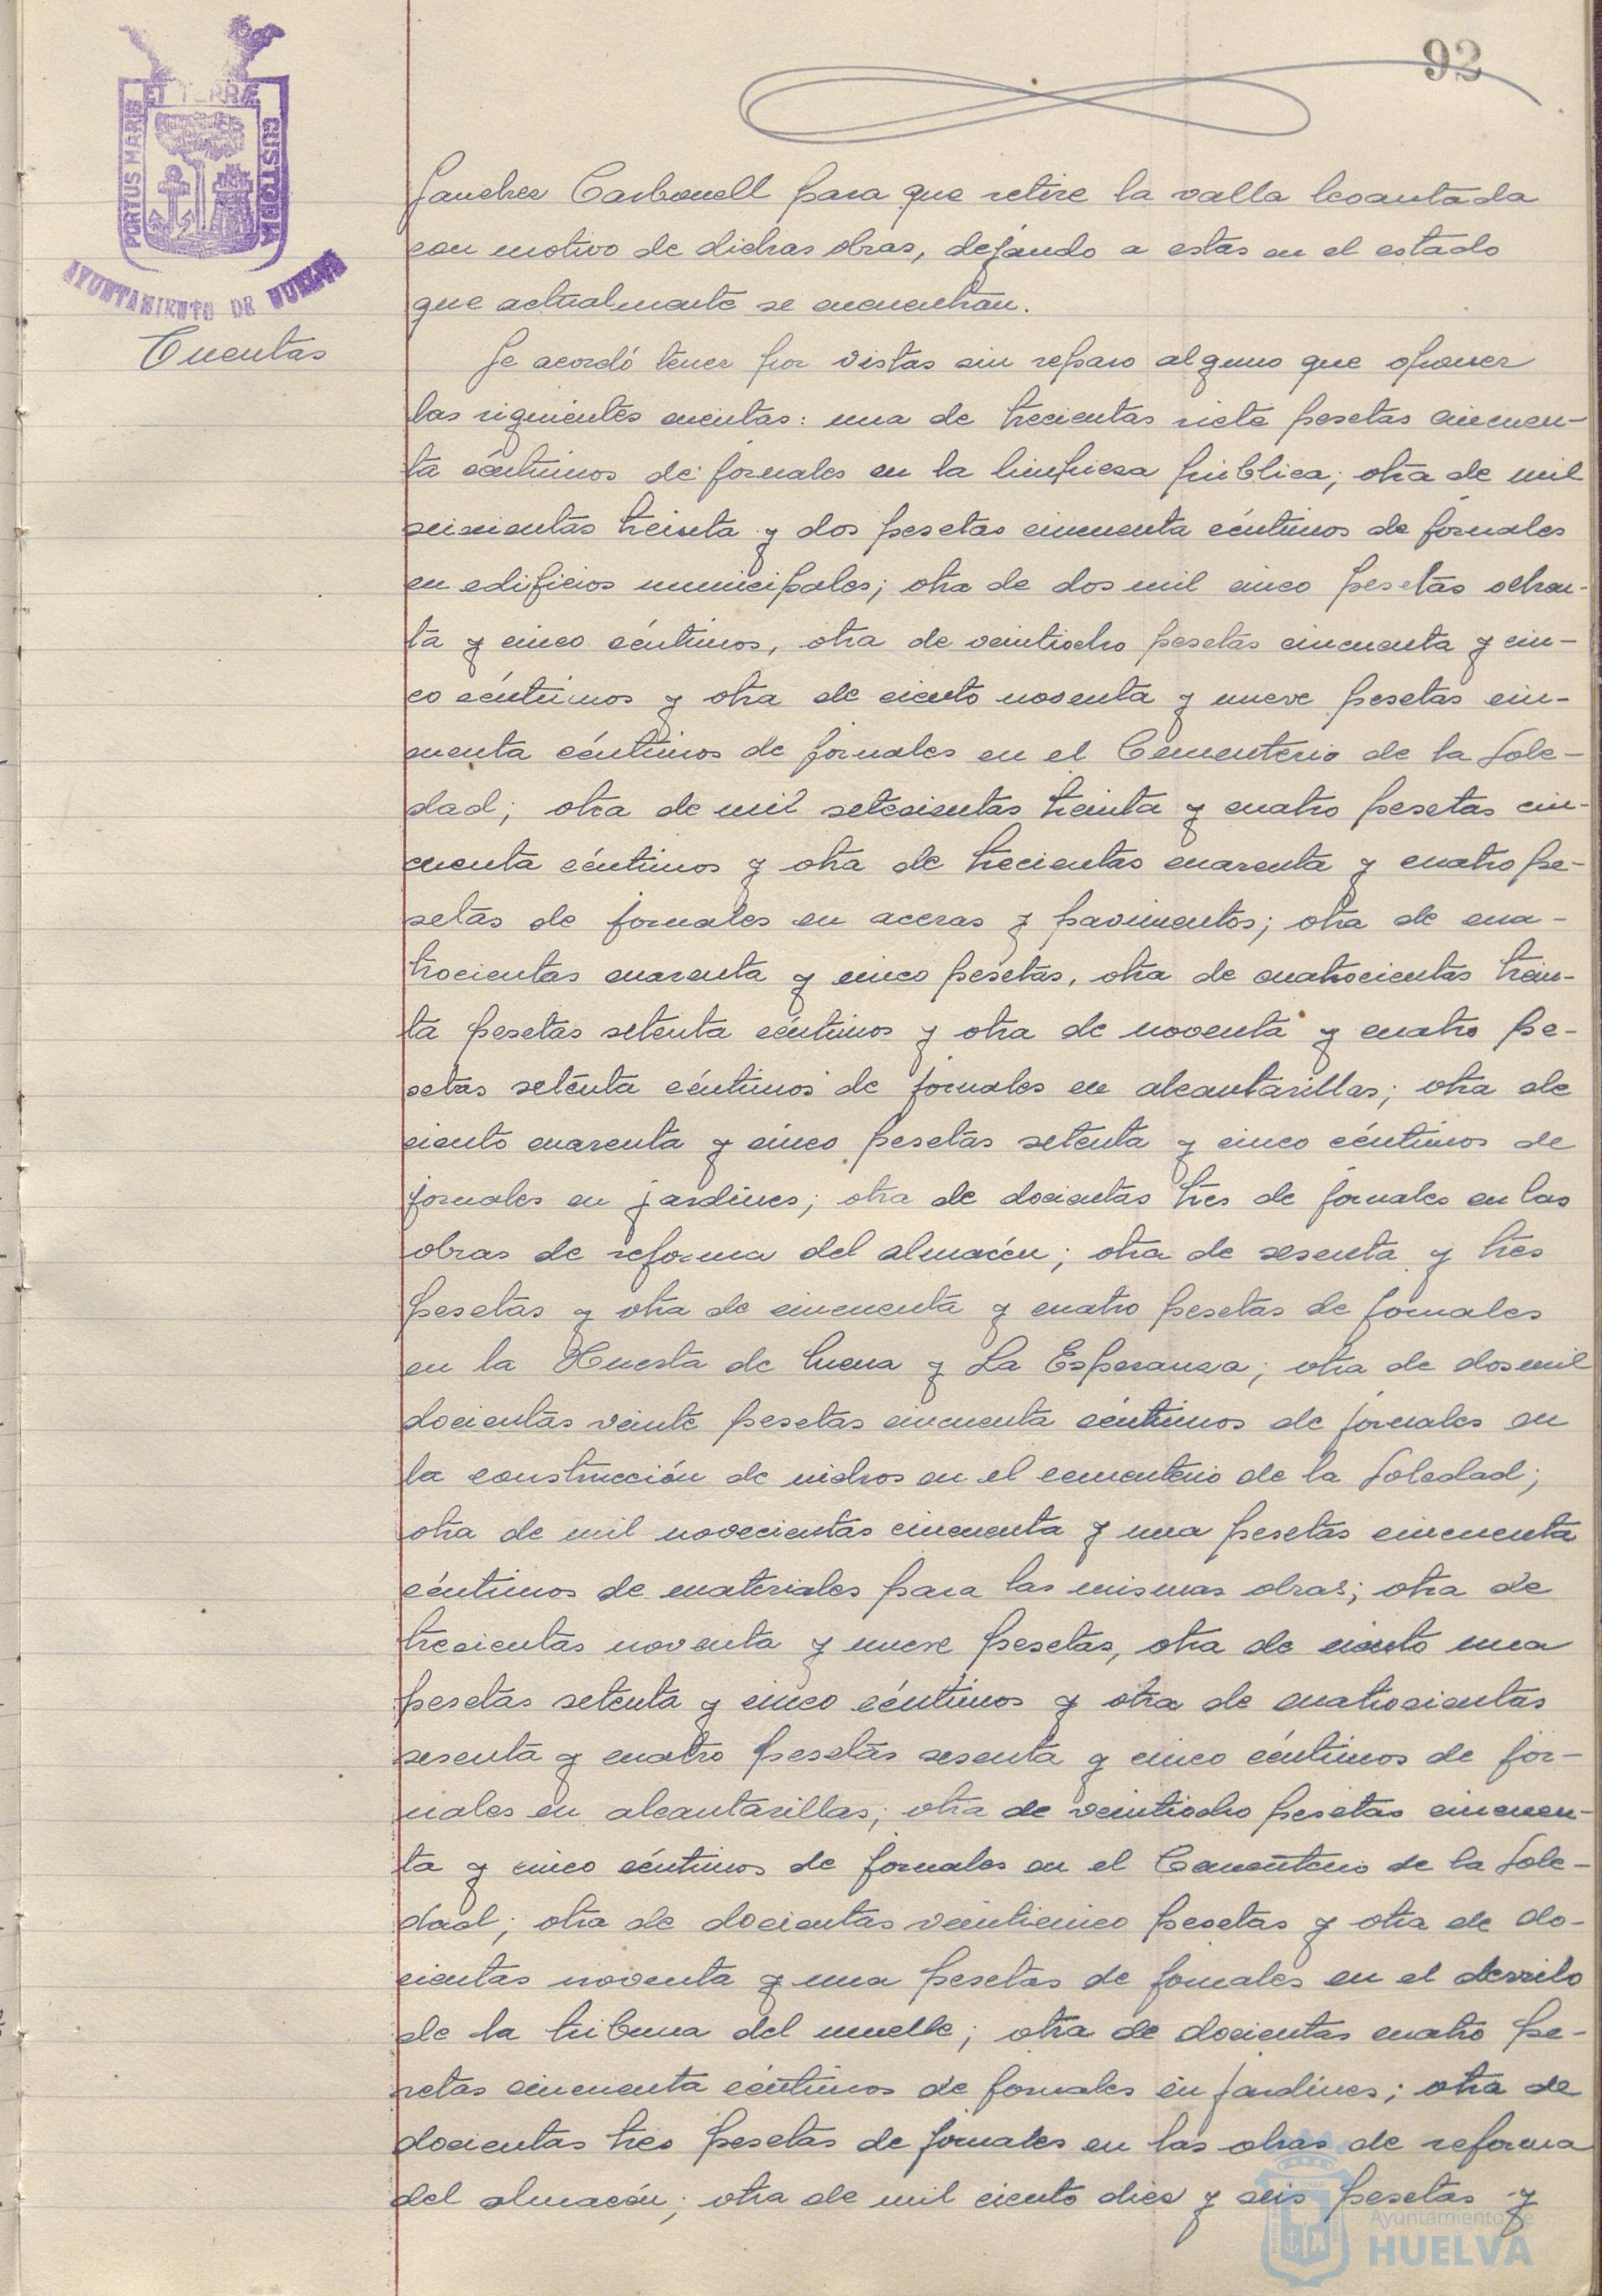 92
PORTUS MARIS
ET TERRÆ
CUSTODIA
AYUNTAMIENTO DE HUELVA
Cuentas
Sanchez Carbonell para que retire la valla levantada
con motivo de dichas obras, dejando a estas en el estado
que actualmente se encuentran.
Se acordó tener por vistas sin reparo alguno que oponer
las siguientes cuentas: una de trecientas siete pesetas cincuen-
ta céntimos de jornales en la limpieza pública; otra de mil
seiscientas treinta y dos pesetas cincuenta céntimos de jornales
en edificios municipales; otra de dos mil cinco pesetas ochen-
ta y cinco céntimos, otra de veintiocho pesetas cincuenta y cin-
co céntimos y otra de ciento noventa y nueve pesetas cin-
cuenta céntimos de jornales en el Cementerio de la Sole-
dad; otra de mil setecientas treinta y cuatro pesetas cin-
cuenta céntimos y otra de trecientas cuarenta y cuatro pe-
setas de jornales en aceras y pavimentos; otra de cua-
trocientas cuarenta y cinco pesetas, otra de cuatrocientas trein-
ta pesetas setenta céntimos y otra de noventa y cuatro pe-
setas setenta céntimos de jornales en alcantarillas; otra de
ciento cuarenta y cinco pesetas setenta y cinco céntimos de
jornales en jardines; otra de docientas tres de jornales en las
obras de reforma del almacén; otra de sesenta y tres
pesetas y otra de cincuenta y cuatro pesetas de jornales
en la Huerta de Mena y La Esperanza; otra de dos mil
docientas veinte pesetas cincuenta céntimos de jornales en
la construcción de nichos en el cementerio de la Soledad;
otra de mil novecientas cincuenta y una pesetas cincuenta
céntimos de materiales para las mismas obras; otra de
trecientas noventa y nueve pesetas, otra de ciento una
pesetas setenta y cinco céntimos y otra de cuatrocientas
sesenta y cuatro pesetas sesenta y cinco céntimos de jor-
nales en alcantarillas; otra de veintiocho pesetas cincuen-
ta y cinco céntimos de jornales en el Cementerio de la Sole-
dad; otra de docientas veinticinco pesetas y otra de do-
cientas noventa y una pesetas de jornales en el derribo
de la tribuna del muelle; otra de docientas cuatro pe-
setas cincuenta céntimos de jornales en jardines; otra de
docientas tres pesetas de jornales en las obras de reforma
del almacén; otra de mil ciento diez y seis pesetas y
Ayuntamiento de
HUELVA